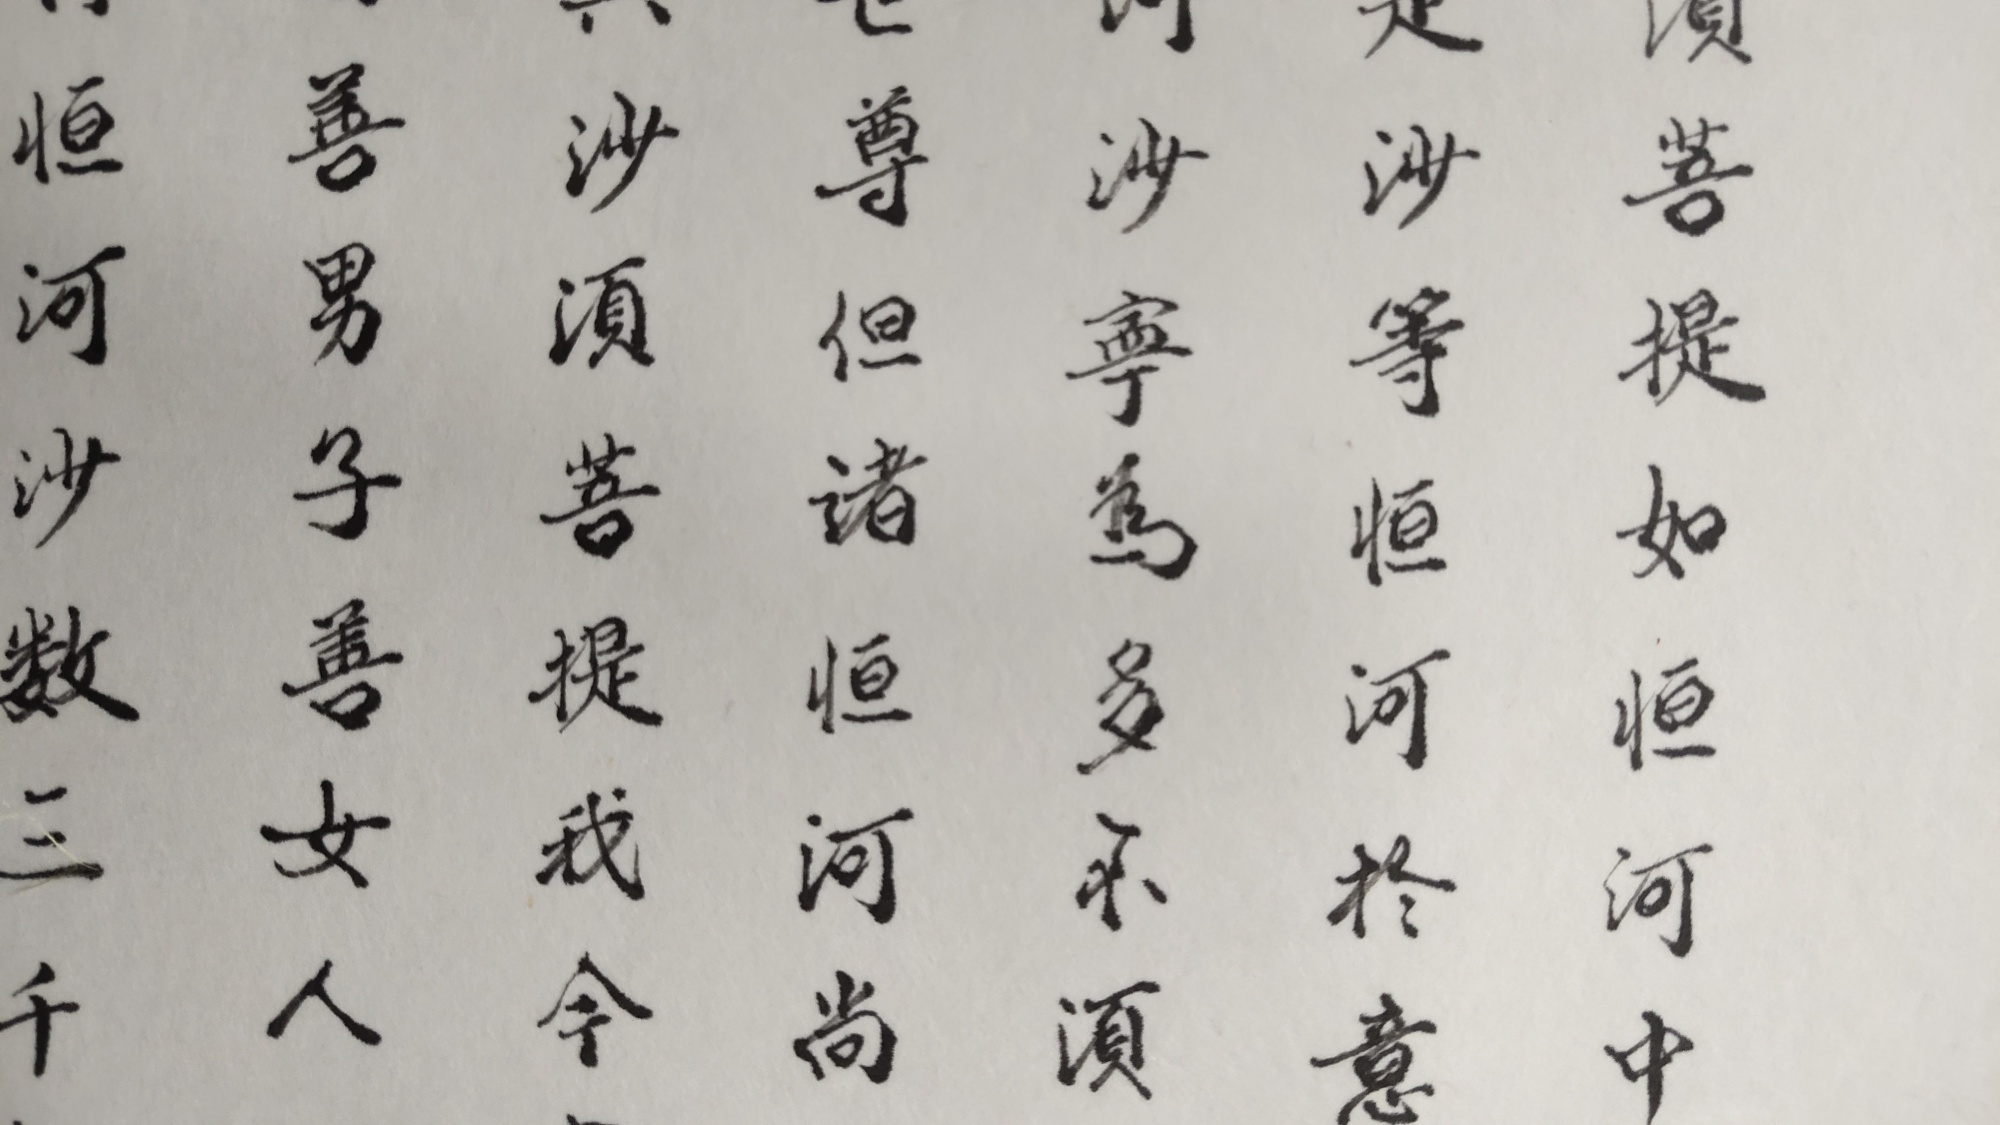 須菩提如恒河中
是沙等恒河於意
河沙寧為多不須
世尊但諸恒河尚
沙須菩提我今
善男子善女人
恒河沙数三千